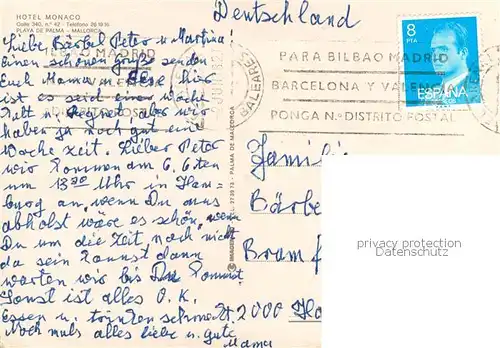 HOTEL MONACO
Calle 340, n.° 42 - Teléfono 26 16 16
PLAYA DE PALMA - MALLORCA
Deutschland
Liebe Bärbel Peter u Martina
einen schönen Gruß senden
Euch Mama u hier
ist es seid einer Woche
kalt u Regnet aber wir
haben ja noch gut eine
Woche Zeit. Lieber Peter
wir kommen am 6.6ten
um 13 Uhr in Ham
burg an, wenn Du uns
abholst wäre es schön, wenn
Du um die Zeit noch nicht
da sein kannst dann
warten wir bis Du kommst.
Sonst ist alles O.K.
Essen u. trinken schmeckt
Noch mals alles liebe u. gute
Mama
BILBAO MADRID
BALEARES
PARA BILBAO MADRID
BARCELONA Y VALENCIA
PONGA N.º DISTRITO POSTAL
8
PTA
ESPAÑA
PALMA DE MALLORCA
Familie
Bärbel
Bram
2000
privacy protection
Datenschutz